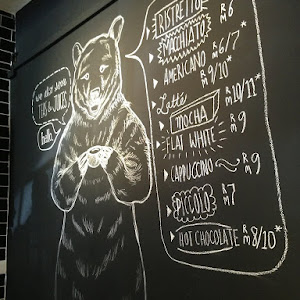 we also serve
TEAS & JUICES
hello.
RISTRETTO RM 6
MACHIATO RM 6/7*
AMERICANO RM 9/10*
Latté RM 10/11*
MOCHA
FLAT WHITE RM 9
CAPPUCCINO RM 9
PICCOLO RM 7
HOT CHOCOLATE RM 8/10*